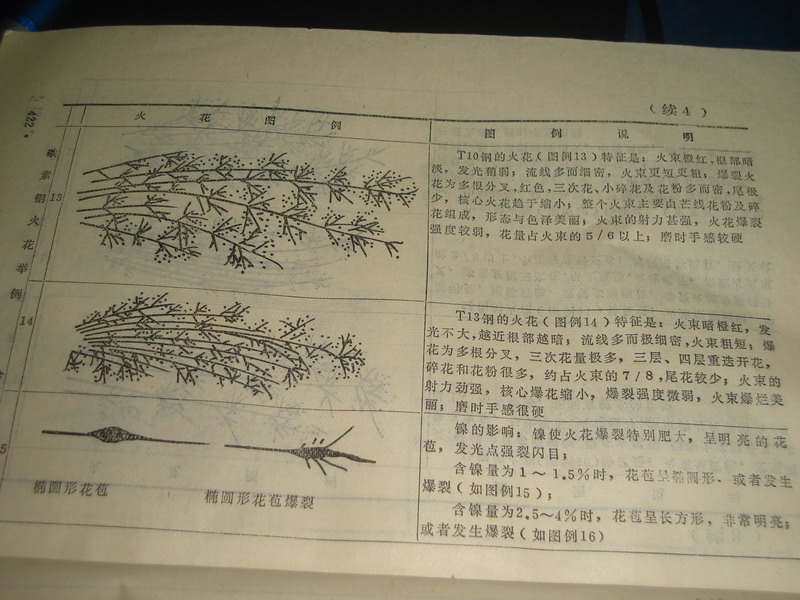 （续4）
·422·
火花图例
图例说明
碳素钢火花举例
13
T10钢的火花（图例13）特征是：火束橙红，根部暗
淡，发光稍弱；流线多而细密，火束更短更粗；爆裂火
花为多根分叉，红色，三次花、小碎花及花粉多而密，尾极
少，核心火花趋于缩小；整个火束主要由芒线花粉及碎
花组成，形态与色泽美丽；火束的射力甚强，火花爆裂
强度较弱，花量占火束的5/6以上；磨时手感较硬
14
T13钢的火花（图例14）特征是：火束暗橙红，发
光不大，越近根部越暗；流线多而极细密，火束粗短；爆
花为多根分叉，三次花量极多，三层、四层重迭开花，
碎花和花粉很多，约占火束的7/8，尾花较少；火束的
射力劲强，核心爆花缩小，爆裂强度微弱，火束爆烂美
丽；磨时手感很硬
5
椭圆形花苞
椭圆形花苞爆裂
镍的影响：镍使火花爆裂特别肥大，呈明亮的花
苞，发光点强裂闪目；
含镍量为1～1.5%时，花苞呈椭圆形、或者发生
爆裂（如图例15）；
含镍量为2.5～4%时，花苞呈长方形，非常明亮；
或者发生爆裂（如图例16）